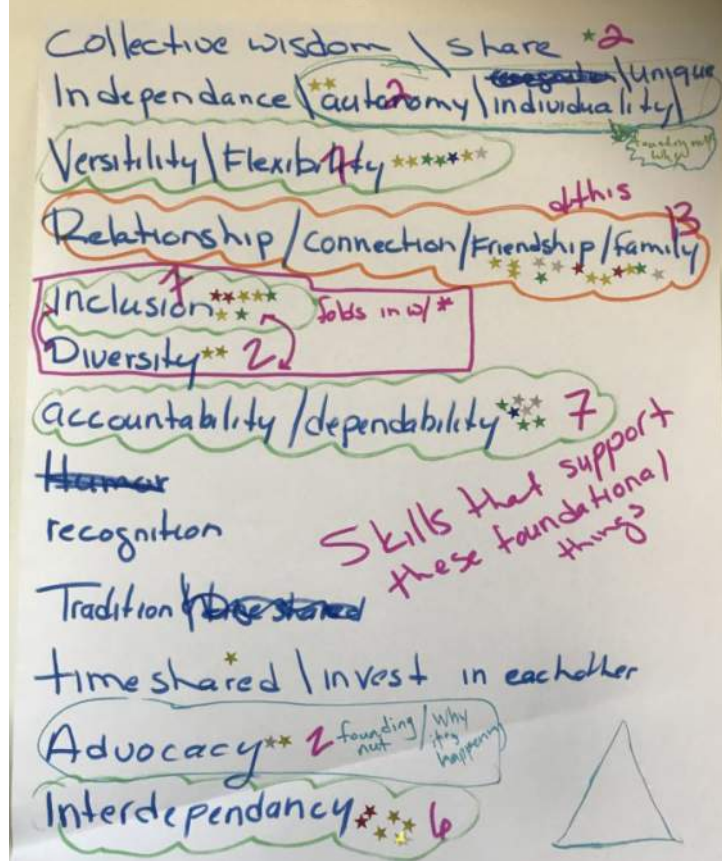 Collective wisdom \ share *2
\unique
Independance \ autonomy \ individuality \
2
founding nut
Versitility \ Flexibility
7
& this
Relationship / connection / Friendship / family 13
Inclusion 7
folds in w/ *
Diversity 2
accountability / dependability 7
Humor
Skills that support
these foundational
things
recognition
Tradition
time shared \ invest in eachother
Advocacy 2 founding nut / Why it's happening
Interdependancy 6